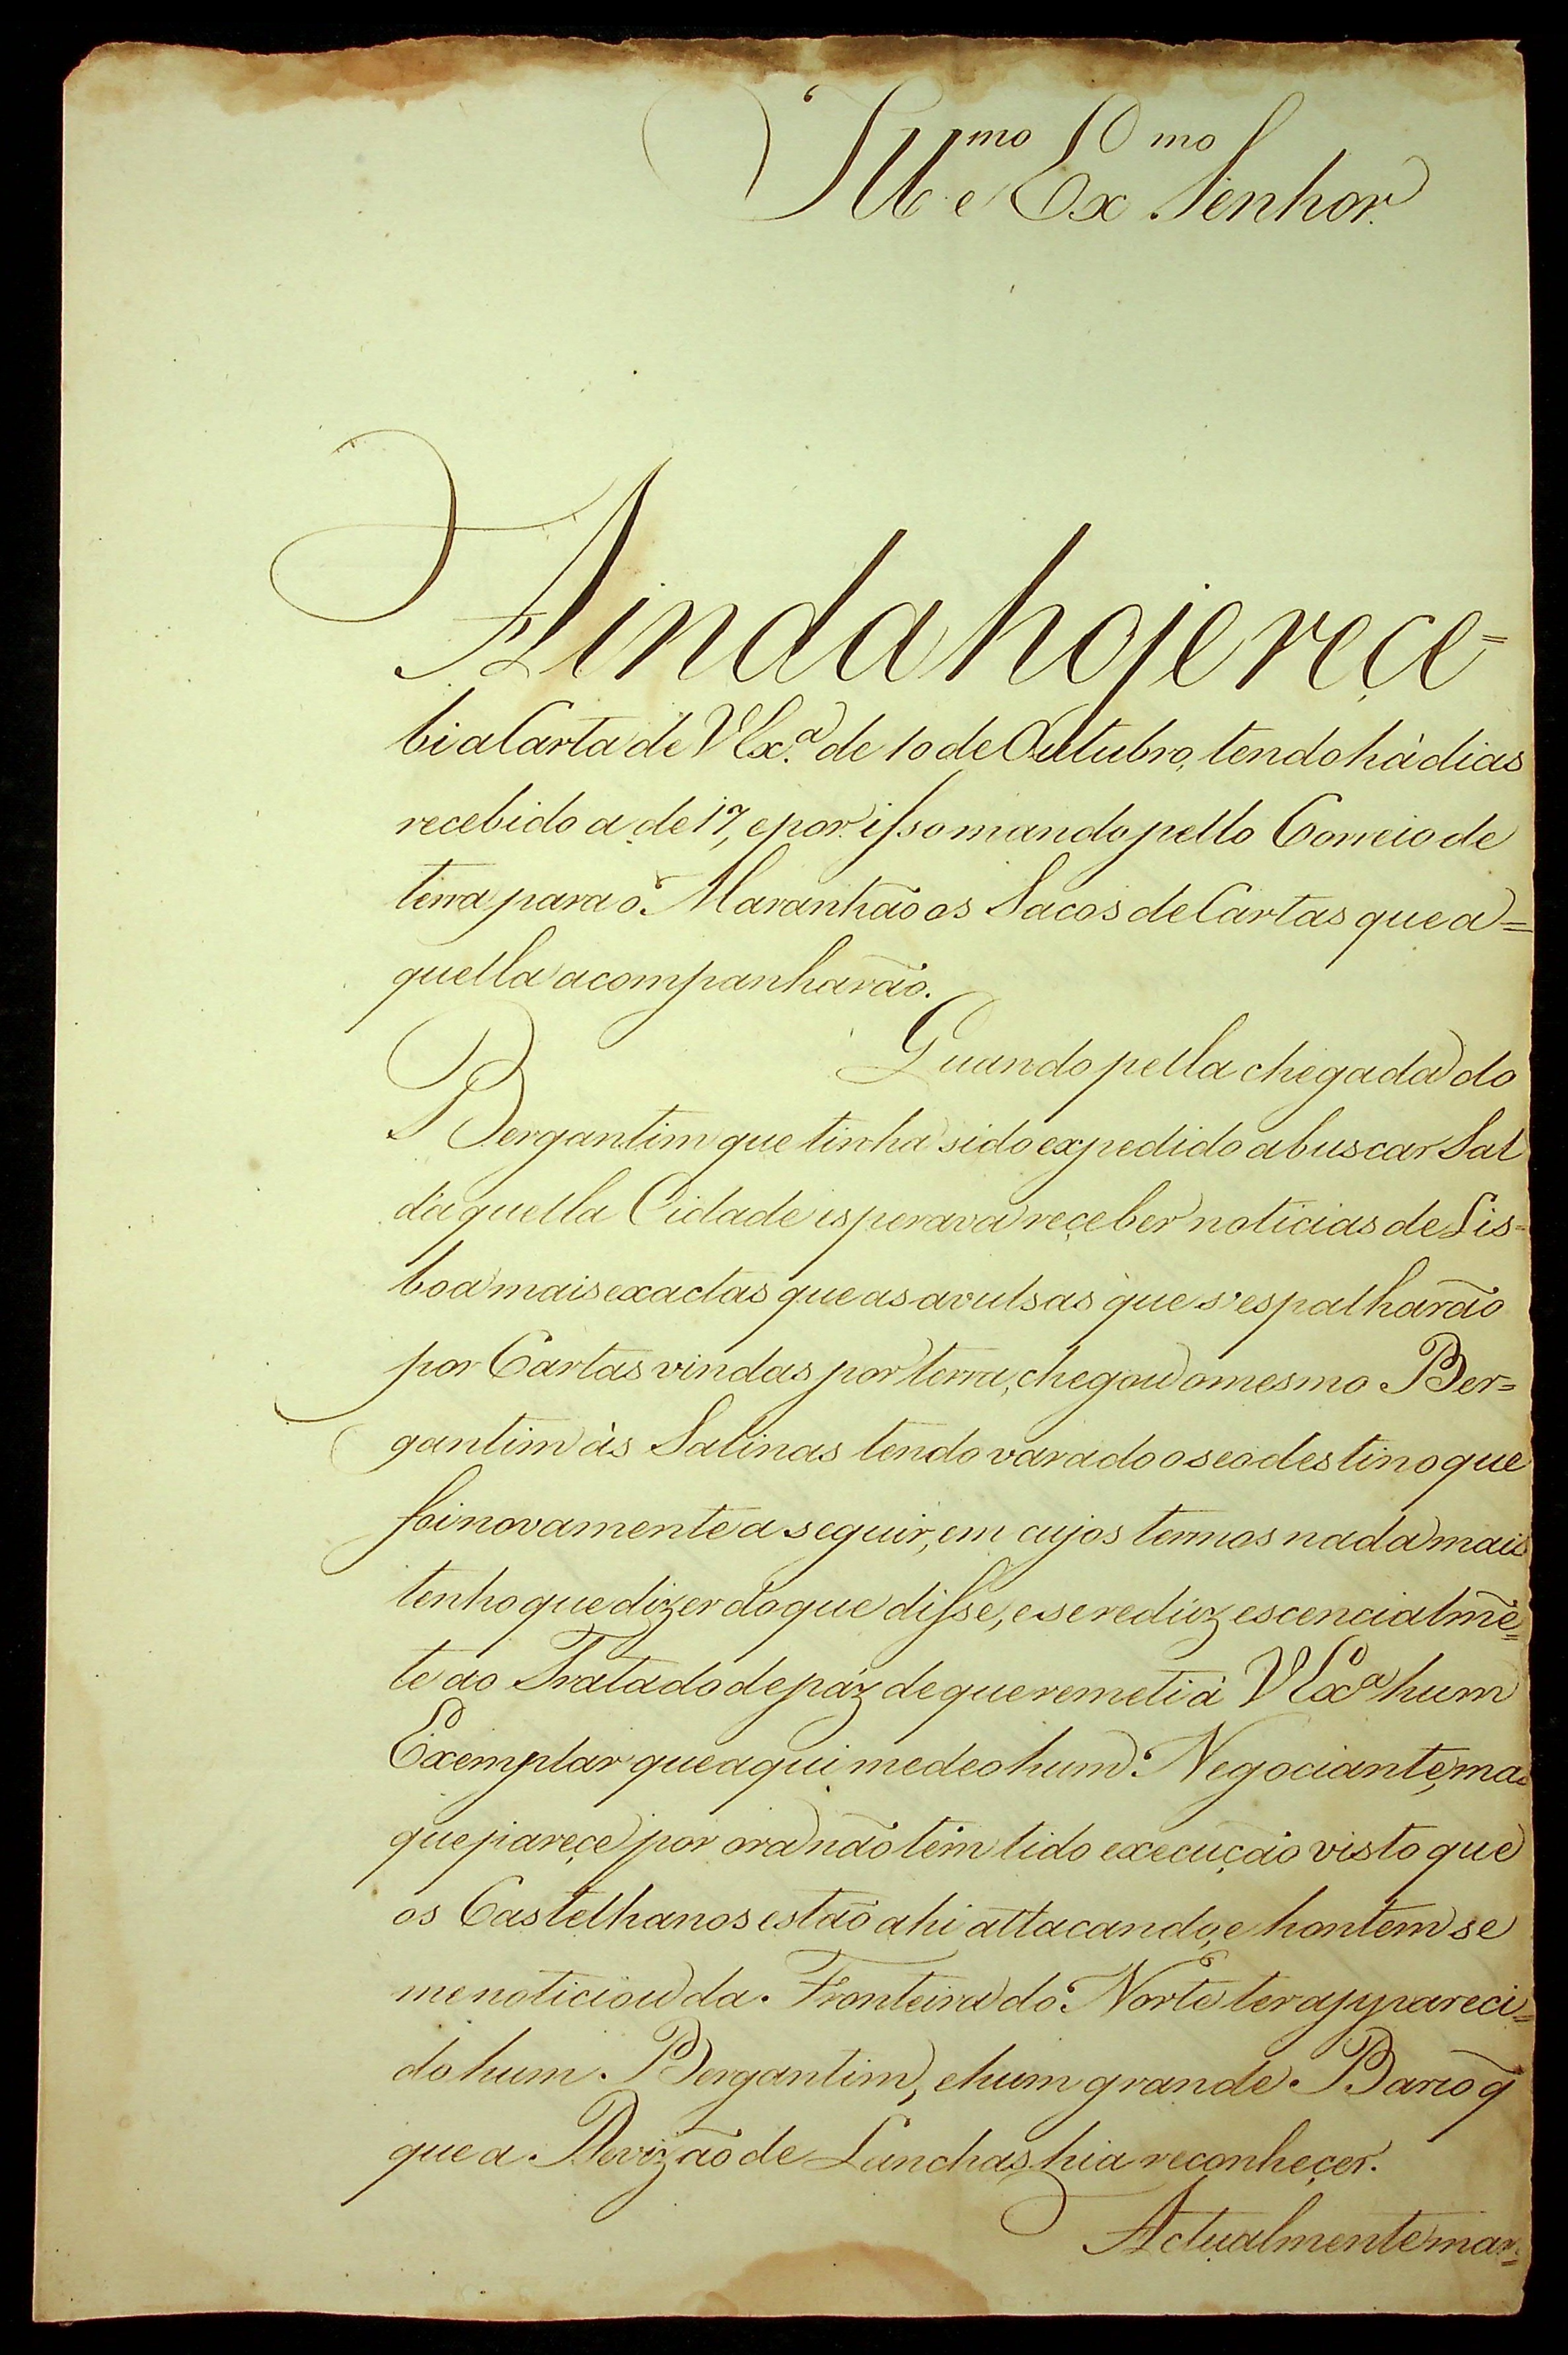 Ill.mo e Ex.mo Senhor.
Ainda hoje rece=
bi a Carta de VEx.ª de 10 de Outubro, tendo hà dias
recebido a de 17, e por isso mando pello Correio de
terra para o Maranhão os Sacos de Cartas que a=
quella acompanharão.
Quando pella chegada do
Bergantim que tinha sido expedido a buscar Sal
da quella Cidade esperava receber noticias de Lis=
boa mais exactas que as avulsas que s'espalharão
por Cartas vindas por terra, chegou o mesmo Ber=
gantim às Salinas tendo varado o seo destino que
foi novamente a seguir, em cujos termos nada mais
tenho que dizer do que disse, e se reduz escencialmẽ=
te ao Tratado de páz de que remeti à VExª hum
Exemplar que aqui me deo hum Negociante, mas
que pareçe por ora não tem tido execução visto que
os Castelhanos estão ahi attacando, e hontem se
me noticiou da Fronteira do Norte ter appareci=
do hum Bergantim, e hum grande Barco q̃
que a Devizão de Lanchas hia reconheçer.
Actualmente mar=